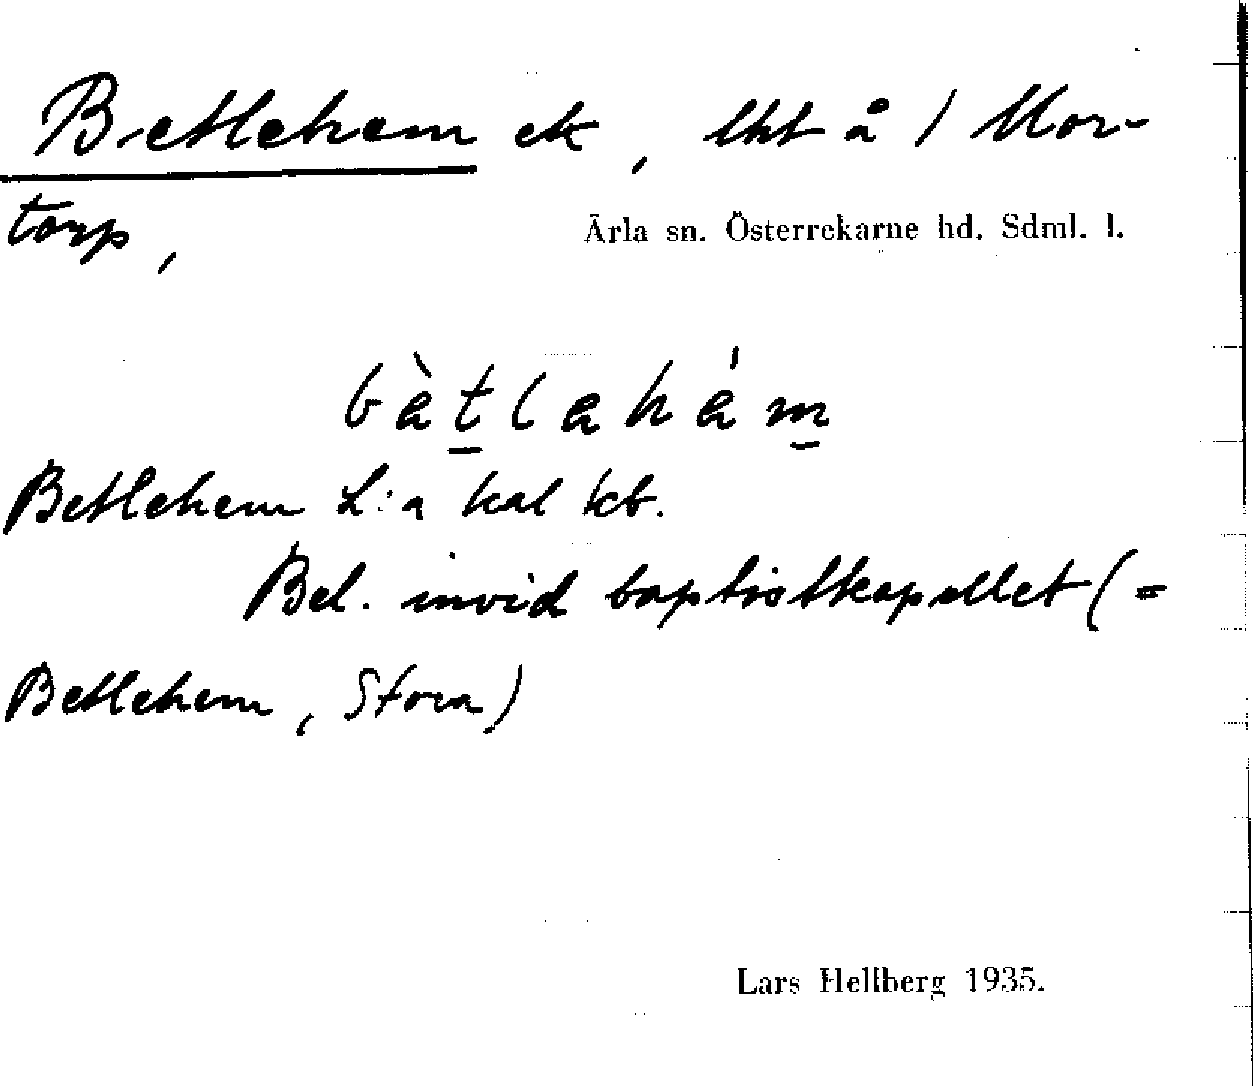 Betlehem ek, lht å 1 Mor-
torp,
Ärla sn. Österrekarne hd. Sdml. l.
bètlahám
Betlehem L:a kal kb.
Bel. invid baptistkapellet (=
Betlehem, Stora)
Lars Hellberg 1935.